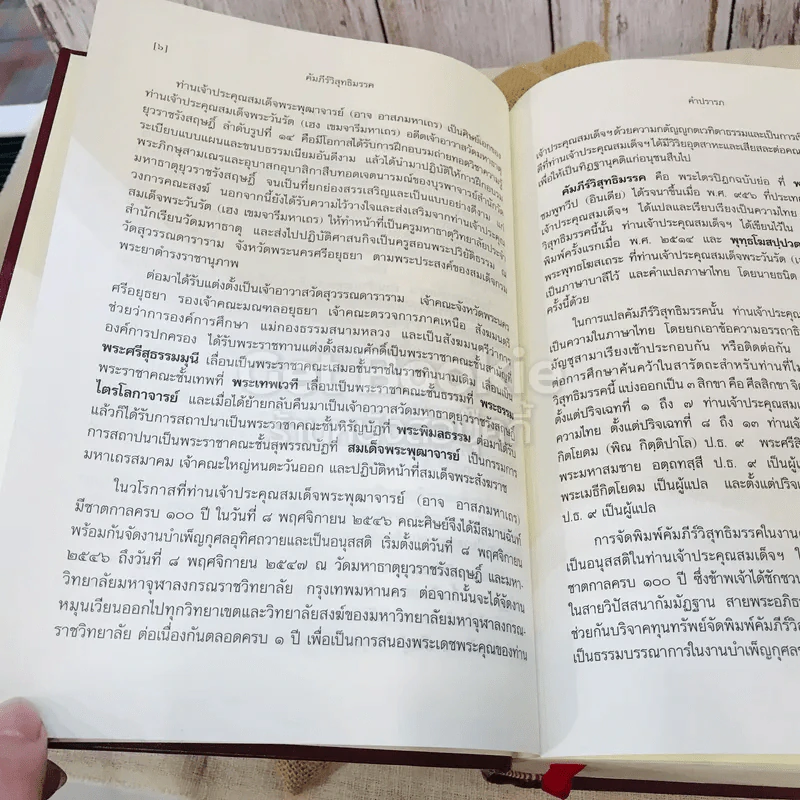 [๖]
คัมภีร์วิสุทธิมรรค
ท่านเจ้าประคุณสมเด็จพระพุฒาจารย์ (อาจ อาสภมหาเถร) เป็นศิษย์เอกของ
ท่านเจ้าประคุณสมเด็จพระวันรัต (เฮง เขมจารีมหาเถร) อดีตเจ้าอาวาสวัดมหาธาตุ
ยุวราชรังสฤษฎิ์ ลำดับรูปที่ ๑๔ คือมีโอกาสได้รับการฝึกอบรมถ่ายทอดวิชาความรู้
ระเบียบแบบแผนและขนบธรรมเนียมอันดีงาม แล้วได้นำมาปฏิบัติให้การฝึกอบรม
พระภิกษุสามเณรและอุบาสกอุบาสิกาสืบทอดเจตนารมณ์ของบูรพาจารย์สำนักวัด
มหาธาตุยุวราชรังสฤษฎิ์ จนเป็นที่ยกย่องสรรเสริญและเป็นแบบอย่างดีงาม แก่
วงการคณะสงฆ์ นอกจากนี้ยังได้รับความไว้วางใจและส่งเสริมจากท่านเจ้าประคุณ
สมเด็จพระวันรัต (เฮง เขมจารีมหาเถร) ให้ทำหน้าที่เป็นครูมหาธาตุวิทยาลัยประจำ
สำนักเรียนวัดมหาธาตุ และส่งไปปฏิบัติศาสนกิจเป็นครูสอนพระปริยัติธรรม ณ
วัดสุวรรณดาราราม จังหวัดพระนครศรีอยุธยา ตามพระประสงค์ของสมเด็จกรม
พระยาดำรงราชานุภาพ
ต่อมาได้รับแต่งตั้งเป็นเจ้าอาวาสวัดสุวรรณดาราราม เจ้าคณะจังหวัดพระนคร
ศรีอยุธยา รองเจ้าคณะมณฑลอยุธยา เจ้าคณะตรวจการภาคเหนือ สังฆมนตรี
ช่วยว่าการองค์การศึกษา แม่กองธรรมสนามหลวง และเป็นสังฆมนตรีว่าการ
องค์การปกครอง ได้รับพระราชทานแต่งตั้งสมณศักดิ์เป็นพระราชาคณะชั้นสามัญที่
พระศรีสุธรรมมุนี เลื่อนเป็นพระราชาคณะเสมอชั้นราชในราชทินนามเดิม เลื่อนเป็น
พระราชาคณะชั้นเทพที่ พระเทพเวที เลื่อนเป็นพระราชาคณะชั้นธรรมที่ พระธรรม
ไตรโลกาจารย์ และเมื่อได้ย้ายกลับคืนมาเป็นเจ้าอาวาสวัดมหาธาตุยุวราชรังสฤษฎิ์
แล้วก็ได้รับการสถาปนาเป็นพระราชาคณะชั้นหิรัญบัฏที่ พระพิมลธรรม ต่อมาได้รับ
การสถาปนาเป็นพระราชาคณะชั้นสุพรรณบัฏที่ สมเด็จพระพุฒาจารย์ เป็นกรรมการ
มหาเถรสมาคม เจ้าคณะใหญ่หนตะวันออก และปฏิบัติหน้าที่สมเด็จพระสังฆราช
ในวโรกาสที่ท่านเจ้าประคุณสมเด็จพระพุฒาจารย์ (อาจ อาสภมหาเถร)
มีชาตกาลครบ ๑๐๐ ปี ในวันที่ ๘ พฤศจิกายน ๒๕๔๖ คณะศิษย์จึงได้มีสมานฉันท์
พร้อมกันจัดงานบำเพ็ญกุศลอุทิศถวายและเป็นอนุสสติ เริ่มตั้งแต่วันที่ ๘ พฤศจิกายน
๒๕๔๖ ถึงวันที่ ๘ พฤศจิกายน ๒๕๔๗ ณ วัดมหาธาตุยุวราชรังสฤษฎิ์ และมหา-
วิทยาลัยมหาจุฬาลงกรณราชวิทยาลัย กรุงเทพมหานคร ต่อจากนั้นจะได้จัดงาน
หมุนเวียนออกไปทุกวิทยาเขตและวิทยาลัยสงฆ์ของมหาวิทยาลัยมหาจุฬาลงกรณ-
ราชวิทยาลัย ต่อเนื่องกันตลอดครบ ๑ ปี เพื่อเป็นการสนองพระเดชพระคุณของท่าน
คำปรารภ
เจ้าประคุณสมเด็จฯ ด้วยความกตัญญูกตเวทิตาธรรมและเป็นการ
ดีที่ท่านเจ้าประคุณสมเด็จฯ ได้มีวิริยอุตสาหะและเสียสละต่อคณะ
เพื่อให้เป็นทิฏฐานุคติแก่อนุชนสืบไป
คัมภีร์วิสุทธิมรรค คือ พระไตรปิฎกฉบับย่อ ที่
ชมพูทวีป (อินเดีย) ได้รจนาขึ้นเมื่อ พ.ศ. ๙๕๖ ที่ประเทศ
เจ้าประคุณสมเด็จฯ ได้แปลและเรียบเรียงเป็นความไทย
วิสุทธิมรรคนี้นั้น ท่านเจ้าประคุณสมเด็จฯ ได้เขียนไว้ใน
พิมพ์ครั้งแรกเมื่อ พ.ศ. ๒๕๑๔ และ
พระพุทธโฆสเถระ ที่ท่านเจ้าประคุณสมเด็จพระวันรัต
เป็นภาษาบาลีไว้ และคำแปลภาษาไทย โดยนายธนิต
ครั้งนี้ด้วย
ในการแปลคัมภีร์วิสุทธิมรรคนั้น ท่านเจ้าประคุณ
เป็นความในภาษาไทย โดยยกเอาข้อความอรรถาธิ
มัญชุสามาเรียงเข้าประกอบกัน หรือติดต่อกัน
ต่อการศึกษาค้นคว้าในสารัตถะสำหรับท่านที่
วิสุทธิมรรคนี้ แบ่งออกเป็น ๓ สิกขา คือ ศีลสิกขา
ตั้งแต่ปริจเฉทที่ ๑ ถึง ๗ ท่านเจ้าประคุณสมเด็จ
ความไทย ตั้งแต่ปริจเฉทที่ ๘ ถึง ๑๓ ท่านเจ้า
กิตโยดม (พิณ กิตฺติปาโล) ป.ธ. ๙ พระศรี
พระมหาสมชาย อตฺถทสฺสี ป.ธ. ๙ เป็นผู้
พระเมธีกิตโยดม เป็นผู้แปล และตั้งแต่ปริจเฉท
ป.ธ. ๙ เป็นผู้แปล
การจัดพิมพ์คัมภีร์วิสุทธิมรรคในงาน
เป็นอนุสสติในท่านเจ้าประคุณสมเด็จฯ
ชาตกาลครบ ๑๐๐ ปี ซึ่งข้าพเจ้าได้ชักชวน
ในสายวิปัสสนากัมมัฏฐาน สายพระอภิธรรม
ช่วยกันบริจาคทุนทรัพย์จัดพิมพ์คัมภีร์
เป็นธรรมบรรณาการในงานบำเพ็ญกุศล